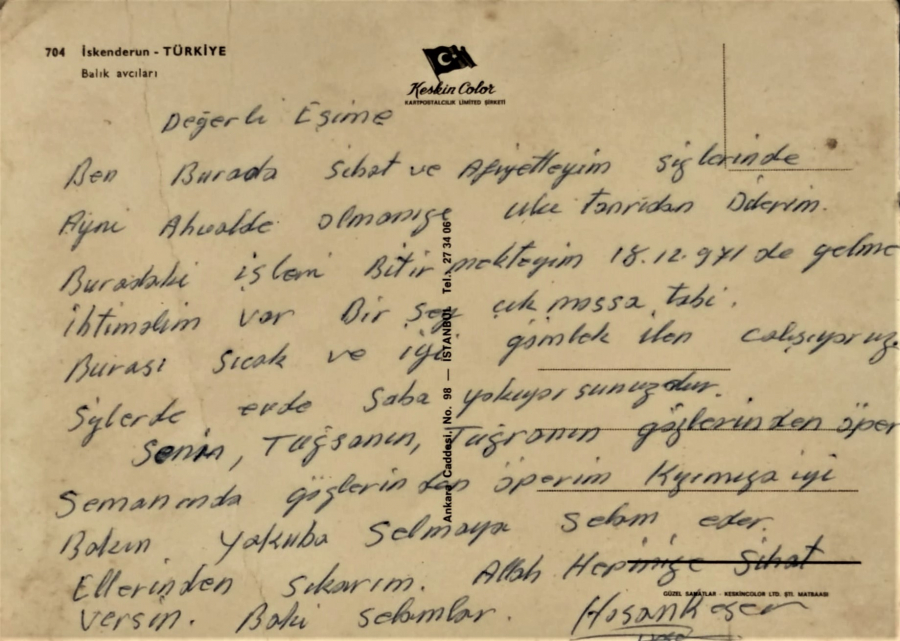 704 İskenderun - TÜRKİYE
Balık avcıları
Keskin Color
KARTPOSTALCILIK LİMİTED ŞİRKETİ
Değerli Eşime
Ben Burada Sıhat ve Afiyetteyim sizlerinde
Ayni Ahvalde olmanıza ulu tanrıdan Dilerim.
Buradaki işlemi Bitirmekteyim 18.12.971 de gelme
ihtimalim var Bir şey çıkmassa tabi.
Burası Sıcak ve iyi gömlek ilen calışıyoruz
Sizlerde evde Saba yakıyorsunuzdur.
Senin, Tuğsanın, Tuğranın gözlerinden öper
Semanında gözlerinden öperim Kızımıza iyi
Bakın Yakuba Selmaya Selam eder.
Ellerinden sıkarım. Allah Hepinize Sihat
versin. Baki selamlar. Hasan Keser
Ankara Caddesi, No. 98 — İSTANBUL Tel.: 27 34 06
GÜZEL SANATLAR - KESKİNCOLOR LTD. ŞTİ. MATBAASI